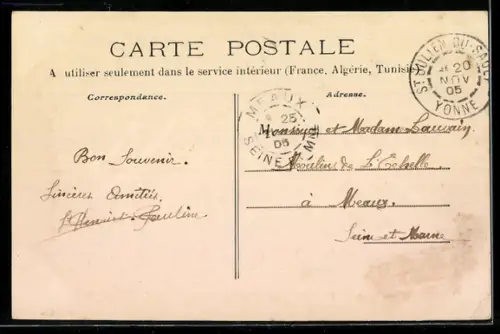 CARTE POSTALE
A utiliser seulement dans le service intérieur (France, Algérie, Tunisie
Correspondance.
Adresse.
ST JULIEN-DU-SAULT
20
NOV
05
YONNE
MEAUX
25
05
SEINE
Bon Souvenir.
Sincères Amitiés
Pauline
Monsieur et Madame
Moulins de L'Echelle
à Meaux
Seine et Marne